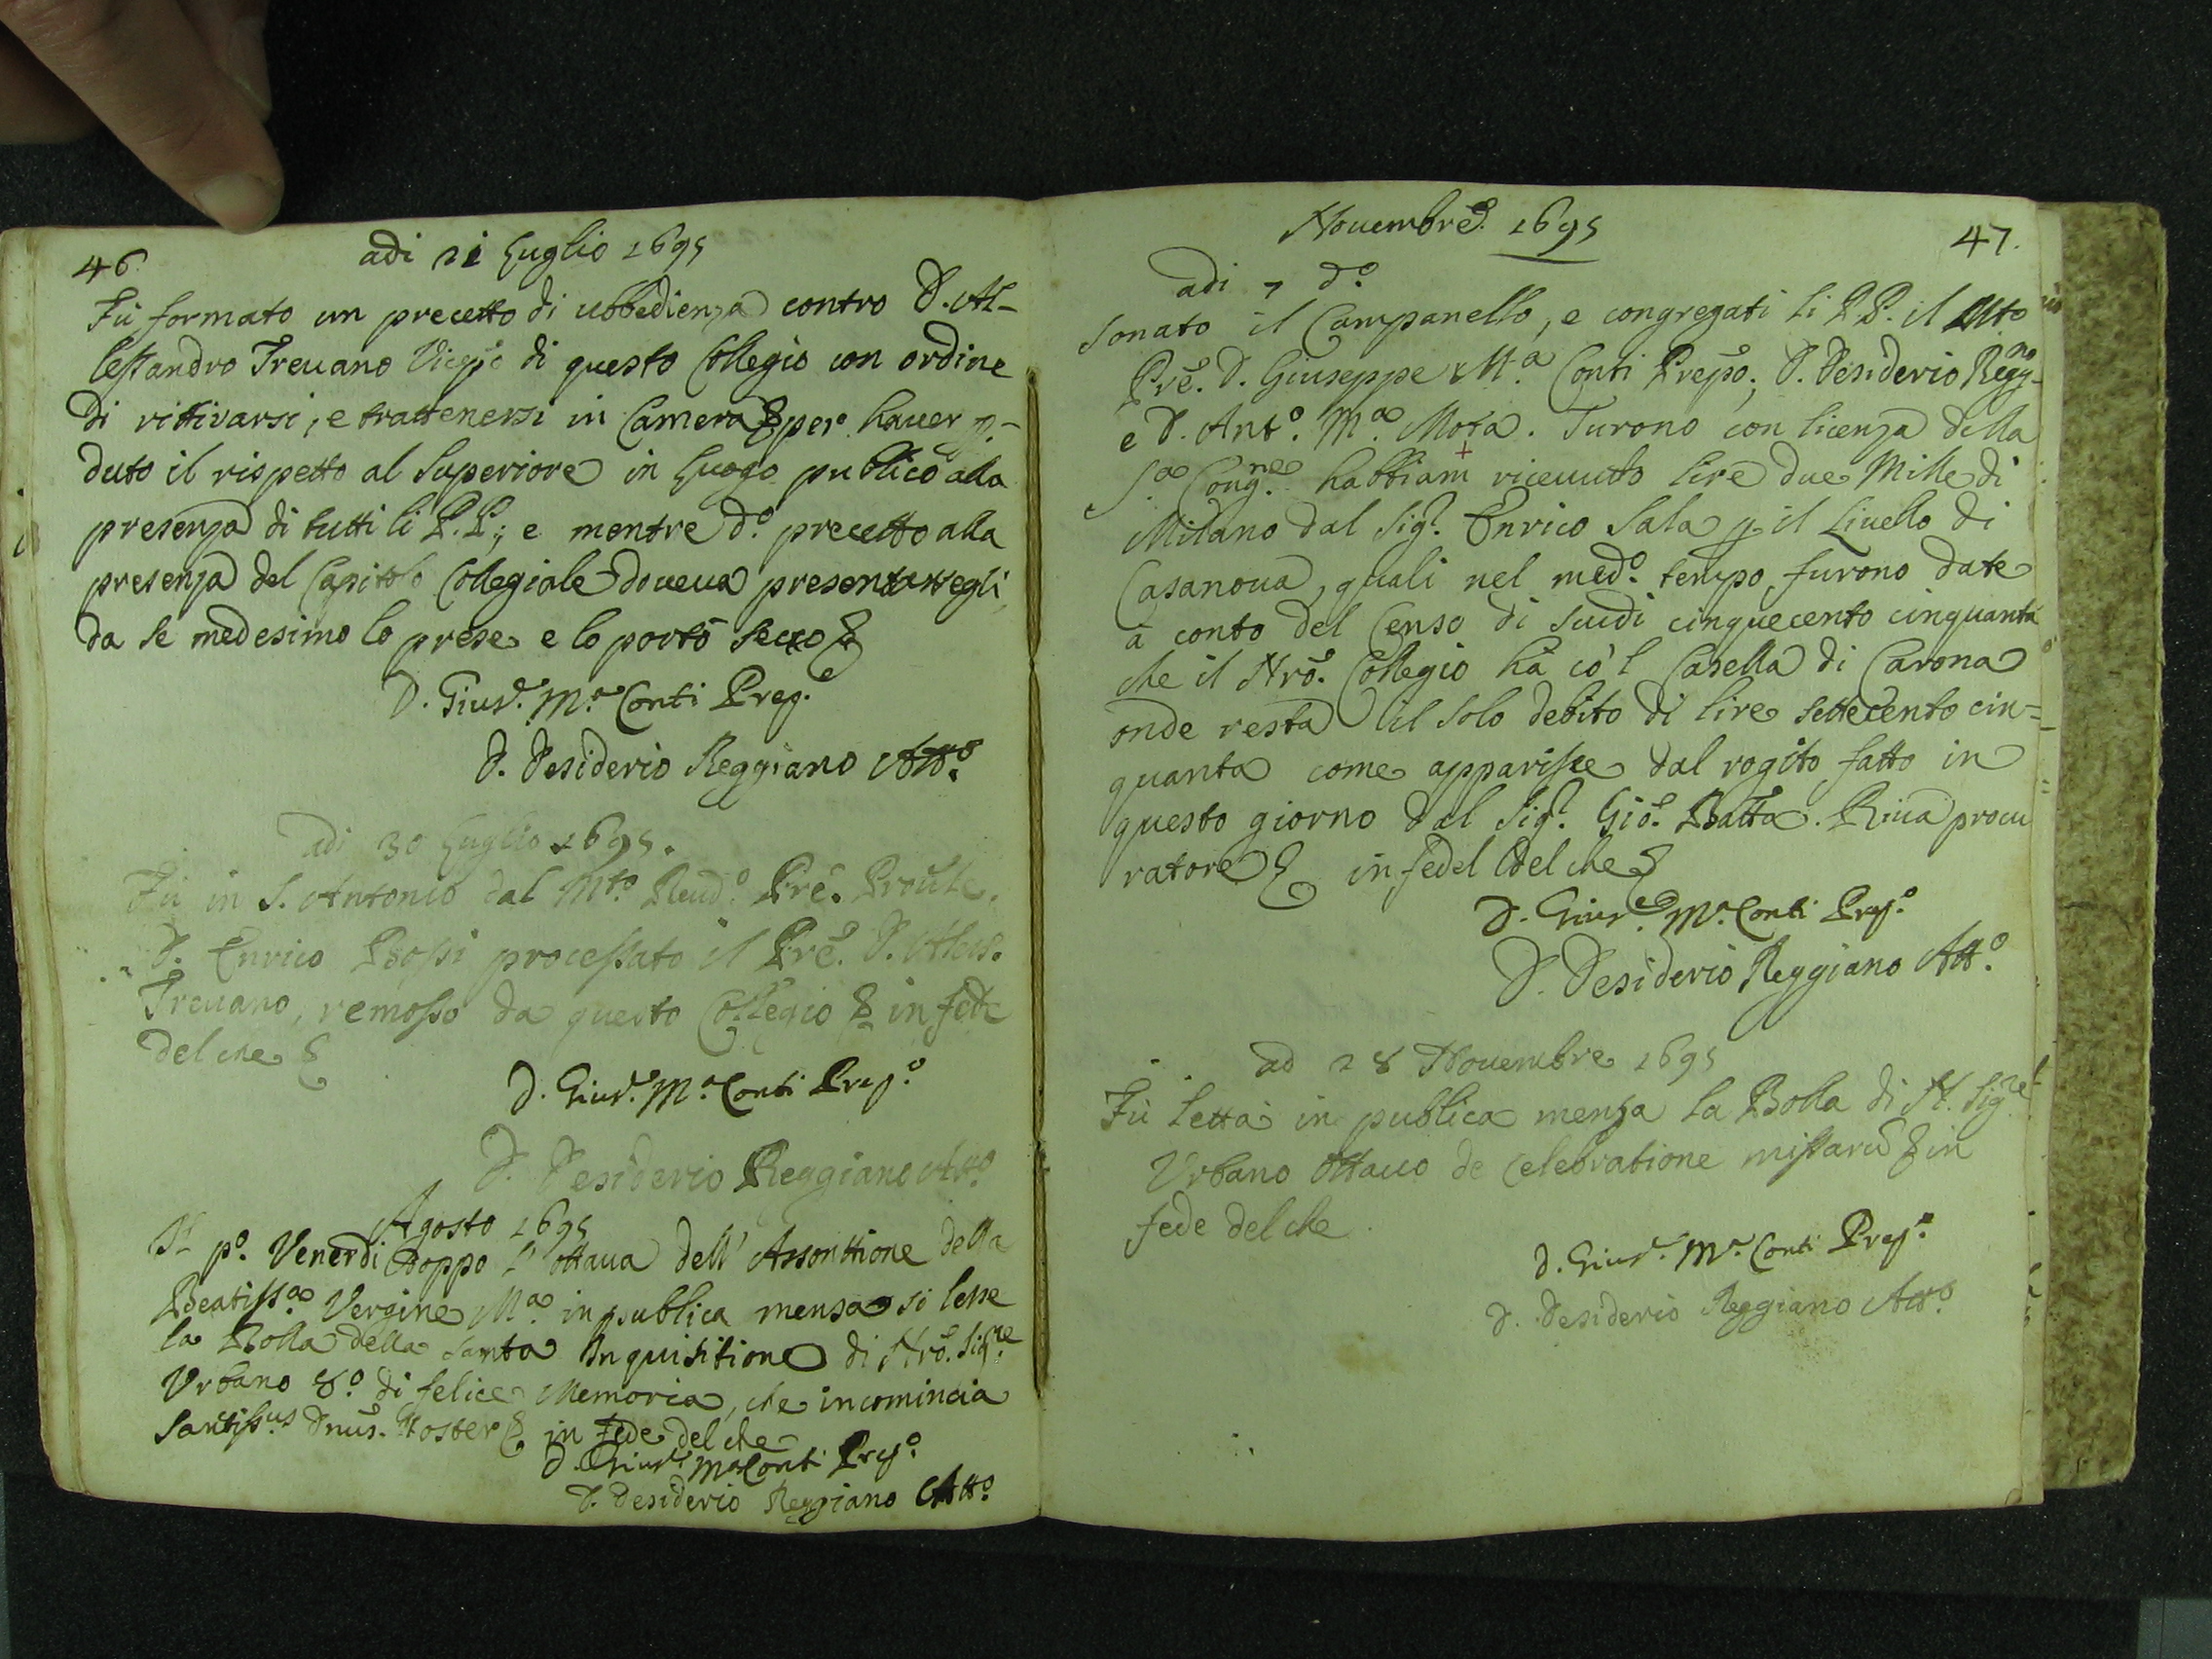 46.
adi 21 Luglio 1695
Fù formato un precetto di ubbedienza contro D. Al-
lessandro Trevano di questo Collegio con ordine
di rittirarsi, e trattenersi in Camera & per haver p.-
duto il rispetto al Superiore in luogo publico alla
presenza di tutti li P.P.; e mentre d.º precetto alla
presenza del Capitolo Collegiale doveva presentarsegli
da se medesimo lo prese e lo portò secco &
D. Gius.e M.a Conti Prep.
D. Desiderio Reggiano Att.º
adi 30 Luglio 1695.
Fù in S. Antonio dal M.to Revd.º Prē. Provle.
D. Enrico Bossi processato il Prē. D. Aless.
Trevano, remosso da questo Collegio & in fede
del che &
D. Gius.e M.a Conti Prep.º
D. Desiderio Reggiano Att.º
Agosto 1695
Il p.º Venerdi doppo l'ottava dell'Assonttione della
Beatiss.a Vergine M.a in publica mensa si lesse
la Bolla della Santa Inquisitione di Nrō. Sig.re
Urbano 8.º di felice Memoria, che incomincia
Santiss.us Dnūs. Noster & in fede del che
D. Gius.e M.a Conti Prep.º
D. Desiderio Reggiano Att.º
47.
Novembre. 1695
adi 7 d.º
Sonato il Campanello, e congregati li P.P. il Mto
Prē. D. Giuseppe M.a Conti Prepō. D. Desiderio Regg.no
e D. Ant.º M.a Mora. Furono con licenza della
S.a Cong.ne habbiam ricevuto lire due Mille di
Milano dal Sig.r Enrico Sala p. il Livello di
Casanova, quali nel med.º tempo furono date
à conto del Censo di Scudi cinquecento cinquanta
che il Nrō. Collegio hà cō'l Casella di Carona
onde resta il solo debito di lire settecento cin=
quanta come apparisce dal rogito fatto in
questo giorno dal Sig.r Giō. Batta. Riva procu
ratore & in fede del che &
D. Gius.e M.a Conti Prep.º
D. Desiderio Reggiano Att.º
ad 28 Novembre 1695
Fù letta in publica mensa la Bolla di N. Sig.re
Urbano Ottavo de Celebratione missarū & in
fede del che
D. Gius.e M.a Conti Prep.º
D. Desiderio Reggiano Att.º